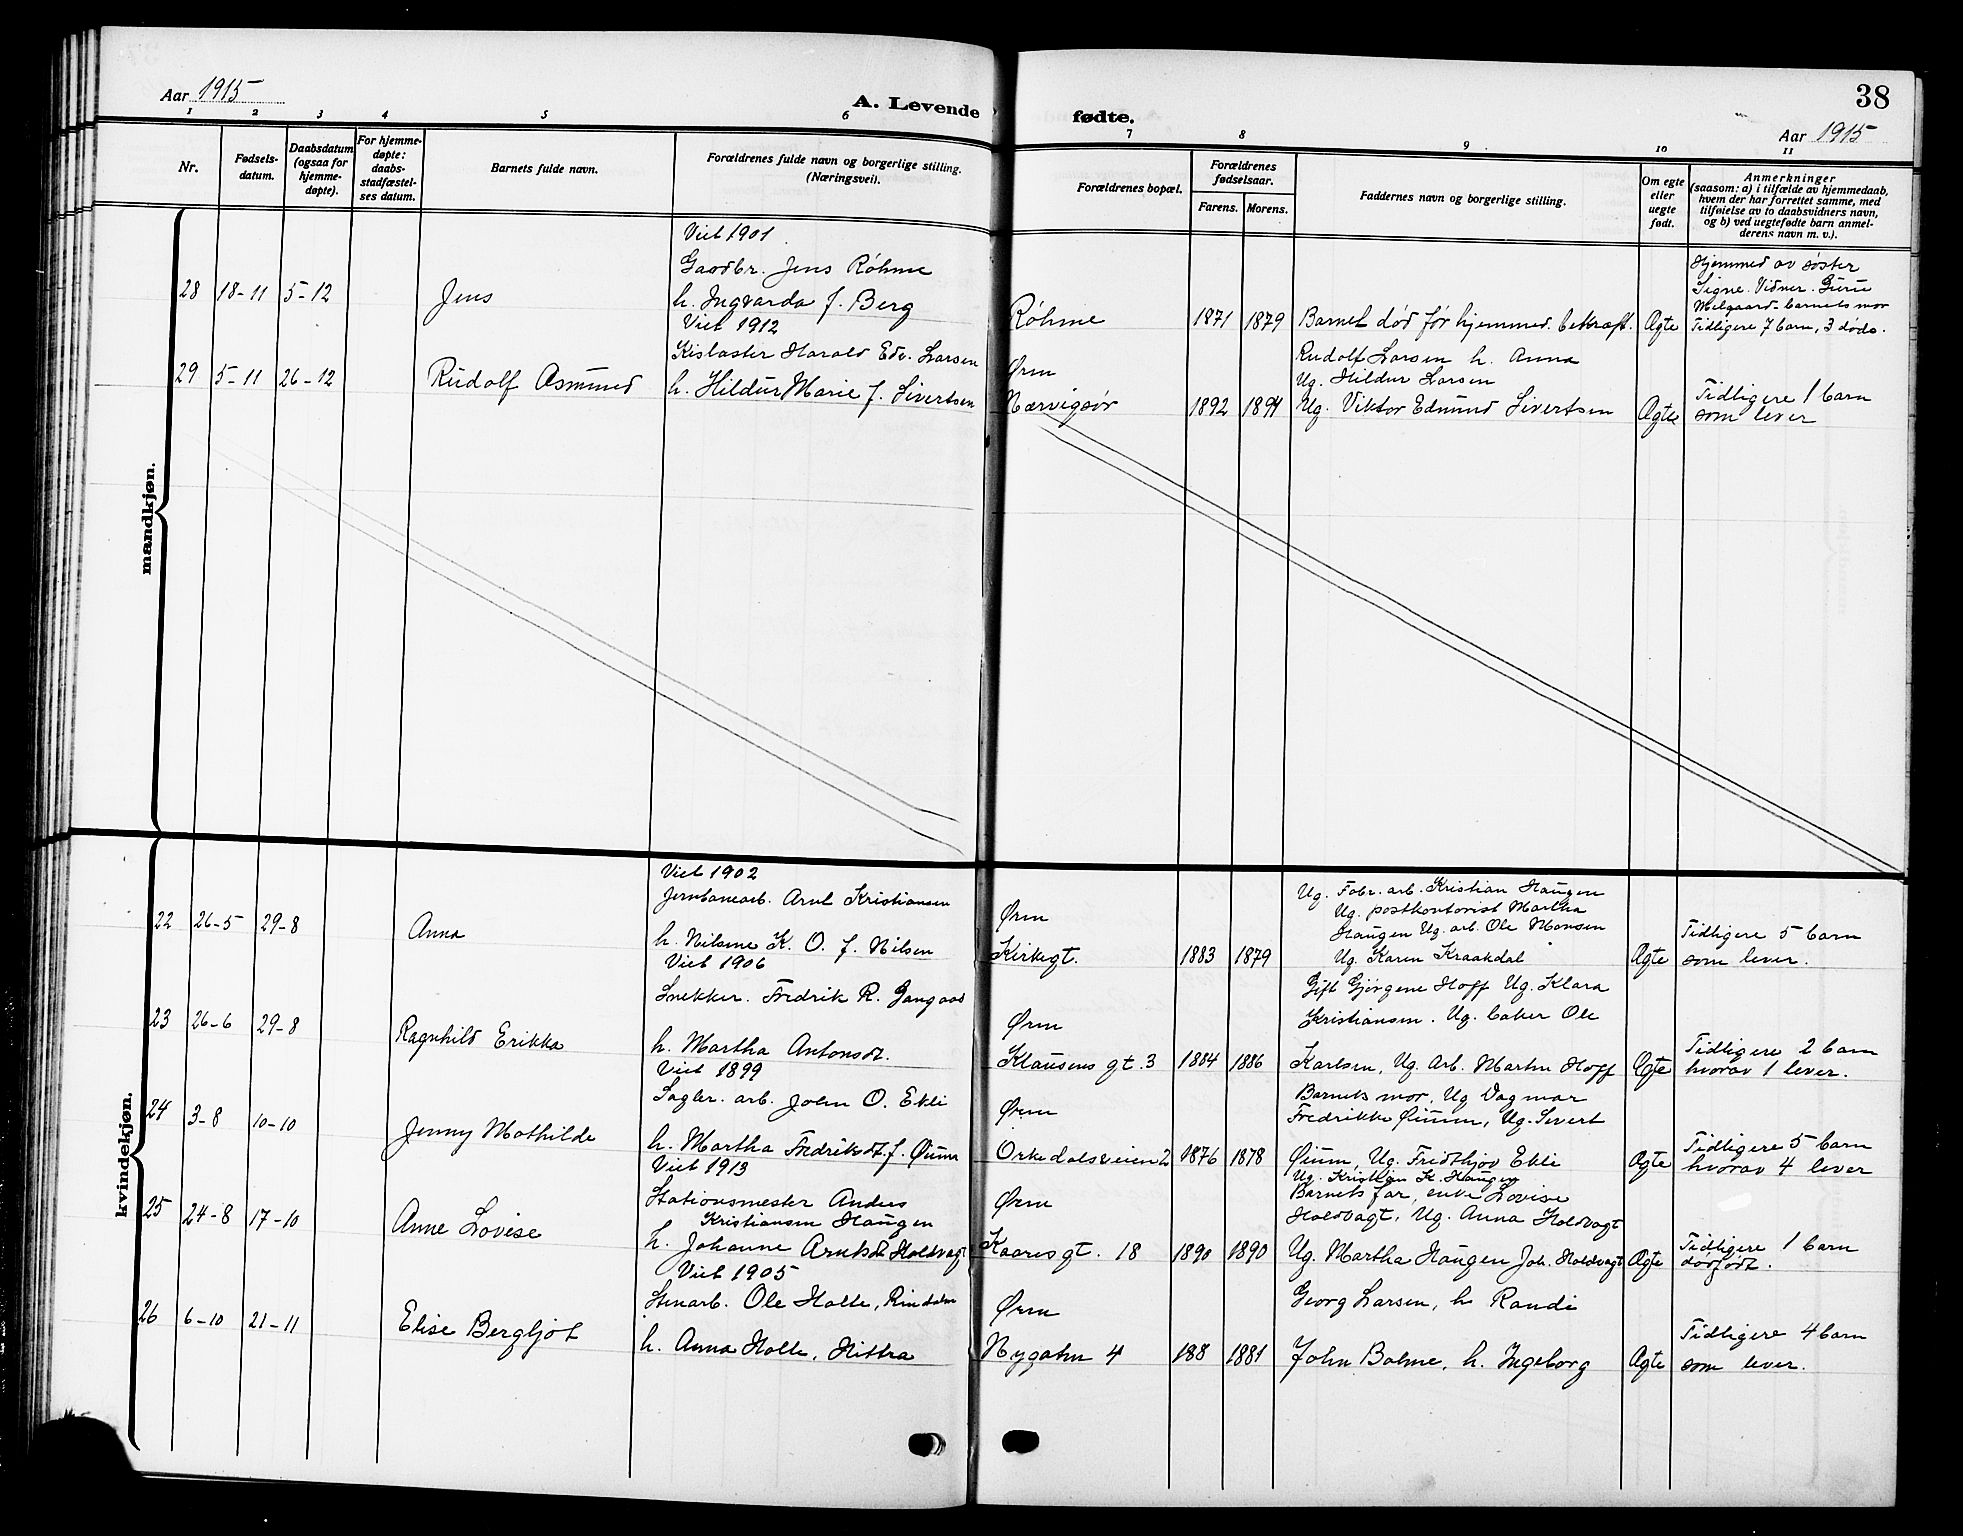 Aar 1915
A. Levende fødte.
38
Aar 1915
1 2 3 4 5 6 7 8 9 10 11
Nr.
Fødsels-
datum.
Daabsdatum
(ogsaa for
hjemme-
døpte).
For hjemme-
døpte:
daabs-
stadfæstel-
ses datum.
Barnets fulde navn.
Forældrenes fulde navn og borgerlige stilling.
(Næringsvei).
Forældrenes bopæl.
Forældrenes
fødselsaar.
Farens. Morens.
Faddernes navn og borgerlige stilling.
Om egte
eller
uegte
født.
Anmerkninger
(saasom: a) i tilfælde av hjemmedaab,
hvem der har forrettet samme, med
tilføielse av to daabsvidners navn,
og b) ved uegtefødte barn anmel-
derens navn m. v.).
mandkjøn.
28 18-11 5-12
Jens
Viet 1901
Gaardbr. Jens Røhme
h. Ingvarda f. Berg
Røhme
1871 1879
Barnet død før hjemmed. bekræft.
Ægte
Hjemmed av søster
Signe. Vidner.
barnets mor
Tidligere 7 barn, 3 døde.
29 5-11 26-12
Rudolf Asmund
Viet 1912
Harald Edv. Larsen
h. Hildur Marie f. Sivertsen
Ørm
Nærvigsør
1892 1894
Rudolf Larsen h. Anna
Ug. Hildur Larsen
Ug. Viktor Edmund Sivertsen
Ægte
Tidligere 1 barn
som lever
kvindekjøn.
22 26-5 29-8
Anna
Viet 1902
Jernbanearb. Arnt Kristiansen
h. Nilsine K. O. f. Nilsen
Ørm
Kirkegt.
1883 1879
Ug. Fabr. arb. Kristian Haugen
Ug. postkontorist Martha
Haugen Ug. arb. Ole Monsen
Ug. Karen Kraakdal
Ægte
Tidligere 5 barn
som lever.
23 26-6 29-8
Ragnhild Erikka
Viet 1906
Snekker. Fredrik R. Gangaas
h. Martha Antonsdt.
Ørm
Klausens gt. 3
1884 1886
Gift Gjørgene Hoff Ug. Klara
Kristiansen. Ug. baker Ole
Karlsen, Ug. Arb. Martin Hoff
Ægte
Tidligere 2 barn
hvorav 1 lever.
24 3-8 10-10
Jenny Mathilde
Viet 1899
Sagbr. arb. John O. Ekli
h. Martha Fredriksdt. f. Øium
Ørm
Orkedalsveien 2
1876 1878
Barnets mor, Ug Dagmar
Fredrikke Øium, Ug. Sivert
Øium, Ug. Fridthjov Ekli
Ægte
Tidligere 5 barn
hvorav 4 lever
25 24-8 17-10
Anne Lovise
Viet 1913
Stationsmester Anders
Kristiansen Haugen
h. Johanne Arntsdt Holdvagt
Ørm
Kaares gt. 18
1890 1890
Ug. Kristian K. Haugen
Barnets far, enke Lovise
Holdvagt, Ug. Anna Holdvagt
Ug. Martha Haugen Joh. Holdvagt
Ægte
Tidligere 1 barn
dødfødt.
26 6-10 21-11
Elise Bergljot
Viet 1905
Stenarb. Ole Holte, Rindalen
h. Anna Holte, Hittra
Ørm
Nygaten 4
188 1881
Georg Larsen, h Randi
John Bohme, h. Ingeborg
Ægte
Tidligere 4 barn
som lever.